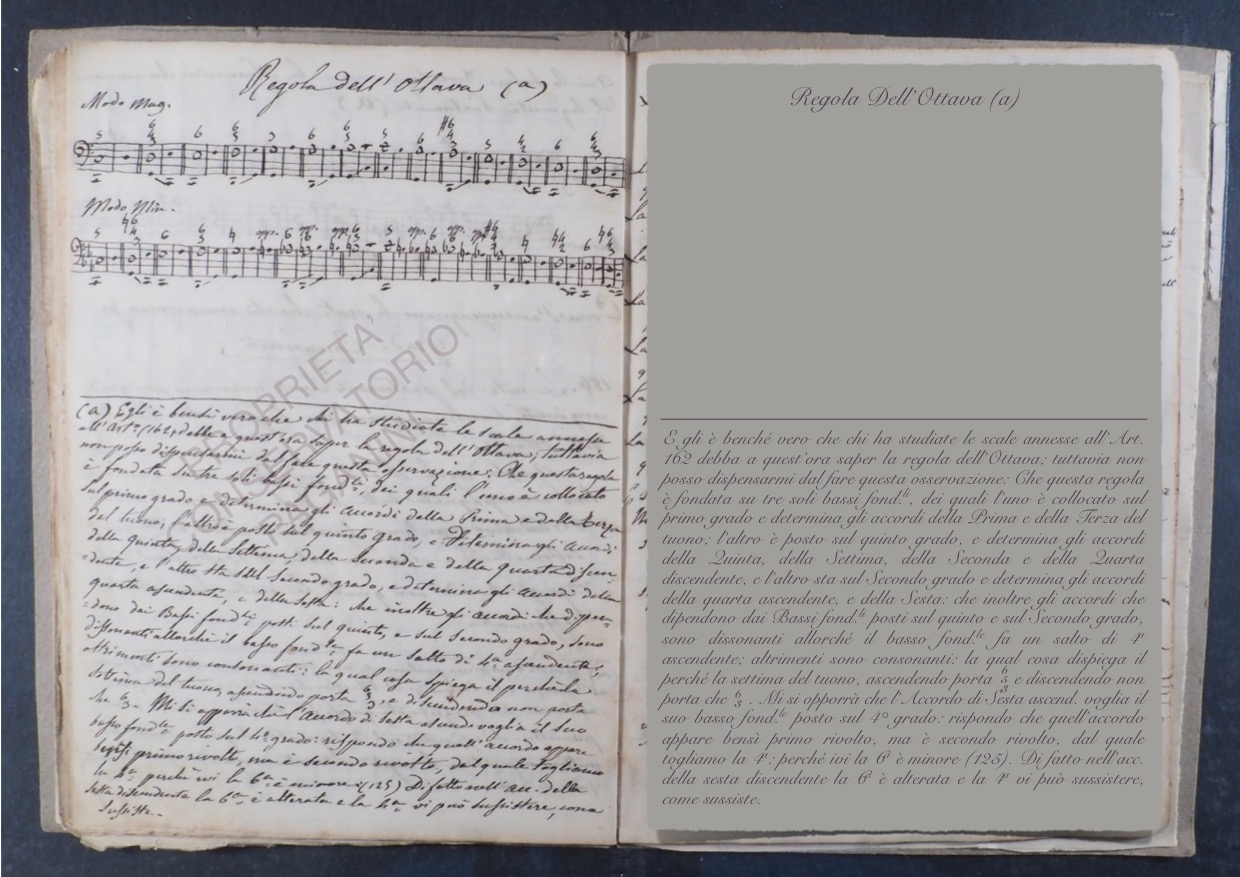 Regola dell' Ottava (a)
Modo Mag.
Modo Min.
PROPRIETA
CONSERVATORIO
PAGANINI
(a) Egli è bensì vero che chi ha studiate le scale annesse
all'Art.° (162) debba a quest'ora saper la regola dell'Ottava; tuttavia
non posso dispensarmi dal fare questa osservazione; Che questa regola
è fondata su tre soli bassi fond.li, dei quali l'uno è collocato
sul primo grado e determina gli accordi della Prima e della Terza
del tuono, l'altro è posto sul quinto grado, e determina gli accordi
della quinta, della Settima, della seconda e della quarta discen-
=dente, e l'altro sta sul secondo grado, e determina gli accordi della
quarta ascendente, e della sesta: che inoltre gli accordi che dipen-
=dono dai Bassi fond.li posti sul quinto, e sul secondo grado, sono
dissonanti allorchè il basso fond.le fa un salto di 4.a ascendente;
altrimenti sono consonanti: la qual cosa spiega il perchè la
settima del tuono, ascendendo porta 6/5/3, e discendendo non porta
che 6/3. Mi si opporrà che l'accordo di sesta ascend. voglia il suo
basso fond.le posto sul 4.° grado: rispondo che quell'accordo appare
bensì primo rivolto, ma è secondo rivolto, dal quale togliamo
la 4.a perchè ivi la 6.a è minore (125) Di fatto nell'acc. della
sesta discendente la 6.a è alterata e la 4.a vi può sussistere, come
sussiste.
Regola Dell'Ottava (a)
E gli è benché vero che chi ha studiate le scale annesse all'Art.
162 debba a quest'ora saper la regola dell'Ottava; tuttavia non
posso dispensarmi dal fare questa osservazione: Che questa regola
è fondata su tre soli bassi fond.li, dei quali l'uno è collocato sul
primo grado e determina gli accordi della Prima e della Terza del
tuono; l'altro è posto sul quinto grado, e determina gli accordi
della Quinta, della Settima, della Seconda e della Quarta
discendente, e l'altro sta sul Secondo grado e determina gli accordi
della quarta ascendente, e della Sesta: che inoltre gli accordi che
dipendono dai Bassi fond.li posti sul quinto e sul Secondo grado,
sono dissonanti allorché il basso fond.le fa un salto di 4a
ascendente; altrimenti sono consonanti: la qual cosa dispiega il
perché la settima del tuono, ascendendo porta 6/5/3 e discendendo non
porta che 6/3 . Mi si opporrà che l'Accordo di Sesta ascend. voglia il
suo basso fond.le posto sul 4° grado: rispondo che quell'accordo
appare bensì primo rivolto, ma è secondo rivolto, dal quale
togliamo la 4a: perché ivi la 6a è minore (125). Di fatto nell'acc.
della sesta discendente la 6a è alterata e la 4a vi può sussistere,
come sussiste.